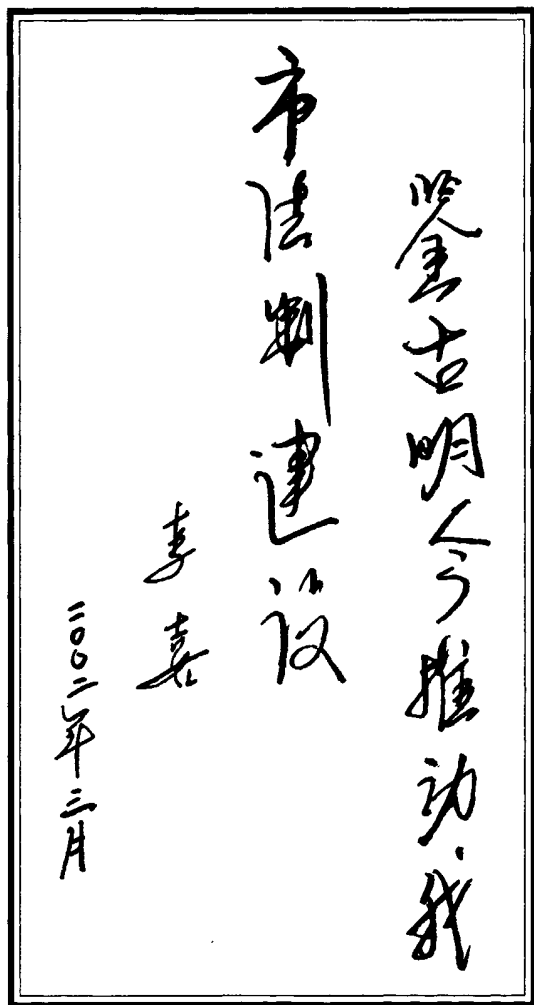 鉴古明今推动我
市法制建设
李嘉
二〇〇二年三月